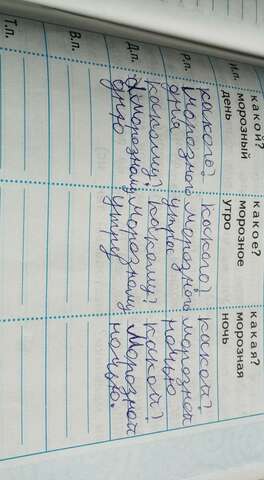 какой? какое? какая?
И.п. морозный морозное морозная
день утро ночь
какого? какого? какой?
Р.п. морозного морозного морозной
дня утра ночью
какому? какому? какой?
Д.п. морозному морозному Морозной
дню утру ночью.
В.п.
Т.п.